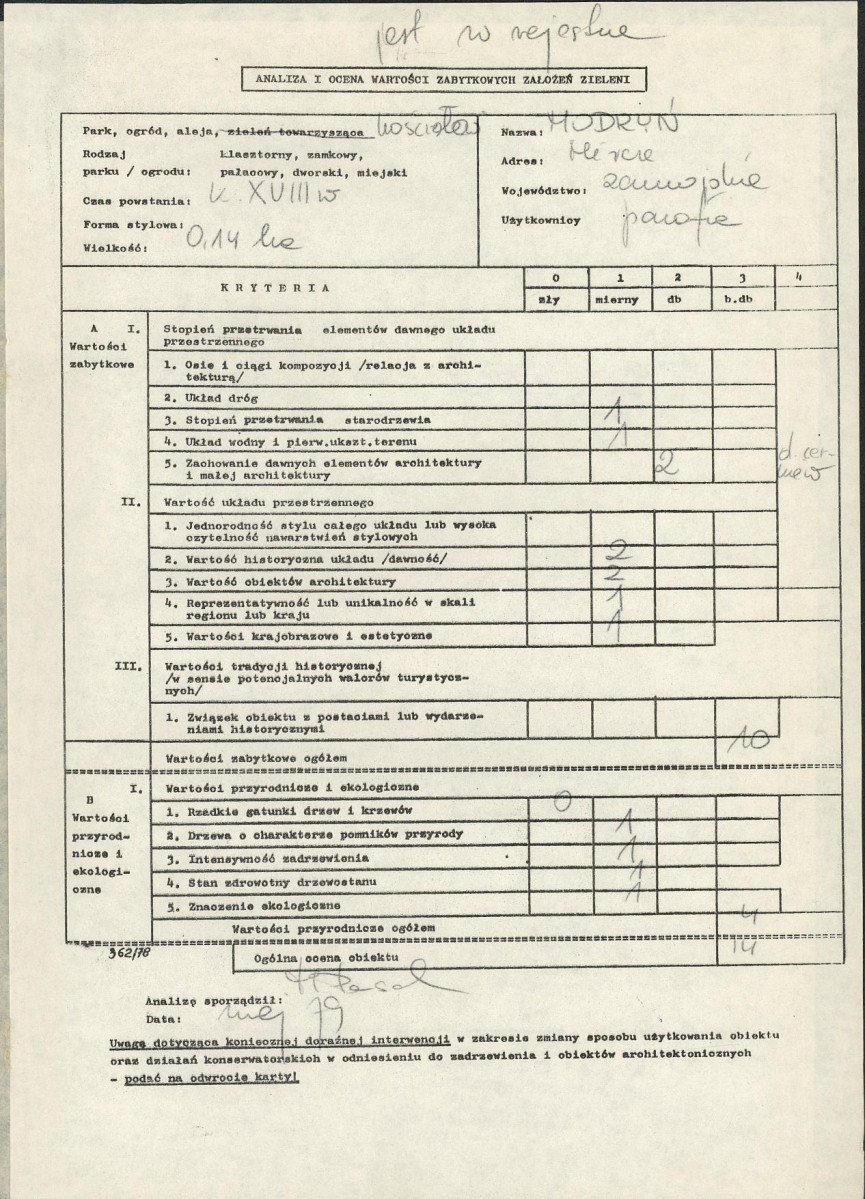 jest w rejestrze
ANALIZA I OCENA WARTOŚCI ZABYTKOWYCH ZAŁOŻEŃ ZIELENI
Park, ogród, aleja, zieleń towarzysząca kościołowi
Rodzaj klasztorny, zamkowy,
parku / ogrodu: pałacowy, dworski, miejski
Czas powstania: k. XVIII w
Forma stylowa:
Wielkość: 0,14 ha
Nazwa: MODRYŃ
Adres: Mircze
Województwo: zamojskie
Użytkownicy parafia
KRYTERIA
0 1 2 3 4
zły mierny db b.db
A I. Stopień przetrwania elementów dawnego układu
Wartości przestrzennego
zabytkowe
1. Osie i ciągi kompozycji /relacja z archi-
tekturą/
2. Układ dróg
3. Stopień przetrwania starodrzewia 1
4. Układ wodny i pierw.ukszt.terenu 1
5. Zachowanie dawnych elementów architektury 2
i małej architektury
II. Wartość układu przestrzennego
1. Jednorodność stylu całego układu lub wysoka
czytelność nawarstwień stylowych
2. Wartość historyczna układu /dawność/ 2
3. Wartość obiektów architektury 2
4. Reprezentatywność lub unikalność w skali 1
regionu lub kraju
5. Wartości krajobrazowe i estetyczne 1
III. Wartości tradycji historycznej
/w sensie potencjalnych walorów turystycz-
nych/
1. Związek obiektu z postaciami lub wydarze-
niami historycznymi
Wartości zabytkowe ogółem 10
B I. Wartości przyrodnicze i ekologiczne
Wartości
przyrod-
nicze i
ekologi-
czne
1. Rzadkie gatunki drzew i krzewów 0
2. Drzewa o charakterze pomników przyrody 1
3. Intensywność zadrzewienia 1
4. Stan zdrowotny drzewostanu 1
5. Znaczenie ekologiczne 1
Wartości przyrodnicze ogółem 4
362/78
Ogólna ocena obiektu 14
Analizę sporządził:
Data: maj 79
Uwagę dotyczącą koniecznej doraźnej interwencji w zakresie zmiany sposobu użytkowania obiektu
oraz działań konserwatorskich w odniesieniu do zadrzewienia i obiektów architektonicznych
- podać na odwrocie karty!